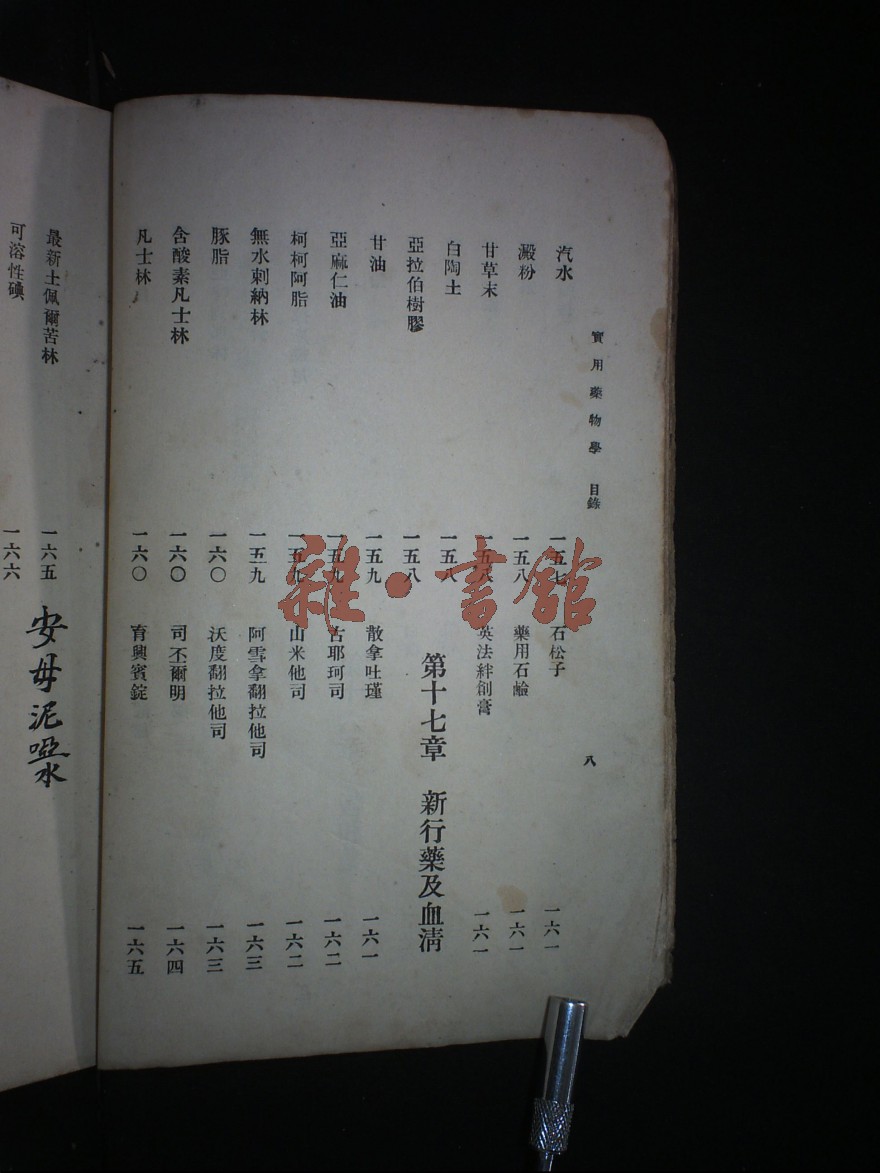 實用藥物學 目錄
八
汽水 一五七
澱粉 一五八
甘草末 一五八
白陶土 一五八
亞拉伯樹膠 一五八
甘油 一五九
亞麻仁油 一五九
柯柯阿脂 一五九
無水刺納林 一五九
豚脂 一六〇
含酸素凡士林 一六〇
凡士林 一六〇
石松子 一六一
藥用石鹼 一六一
英法絆創膏 一六一
第十七章 新行藥及血清
散拿吐瑾 一六一
古耶珂司 一六二
山米他司 一六二
阿雪拿翻拉他司 一六三
沃度翻拉他司 一六三
司丕爾明 一六四
育興賓錠 一六五
最新土佩爾苦林 一六五
可溶性碘 一六六
安母泥啞水
雜·書館